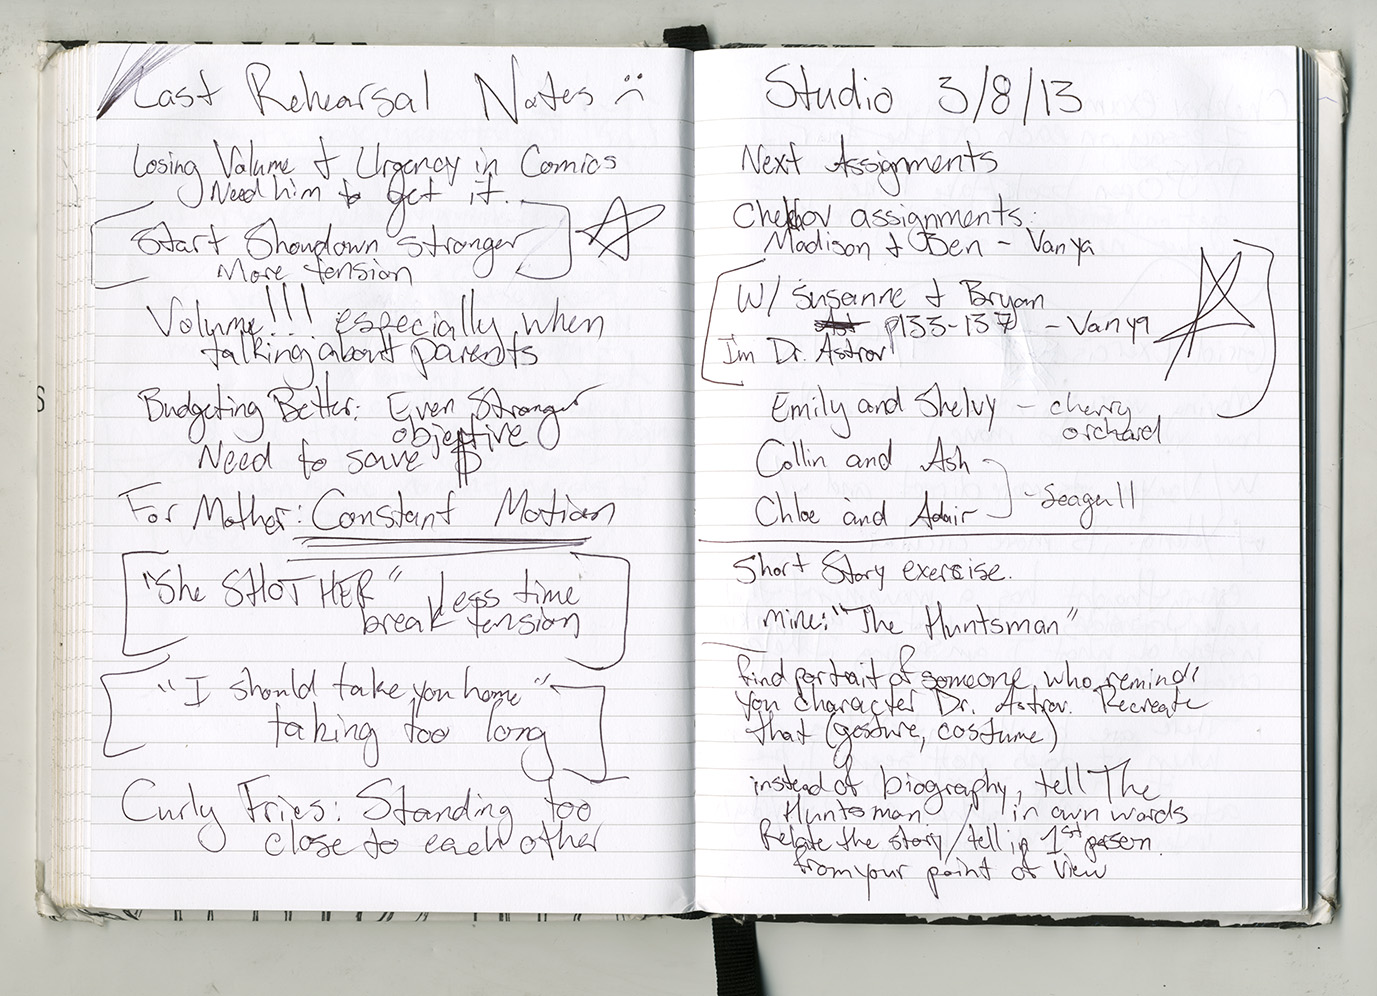 Last Rehearsal Notes :(
Losing Volume + Urgency in Comics
Need him to get it.
Start Showdown stronger
More tension
Volume!!! especially when
talking about parents
Budgeting Better: Even Stronger
objective
Need to save $
For Mother: Constant Motion
"She SHOT HER" Less time
break tension
"I should take you home"
taking too long
Curly Fries: Standing too
close to each other
Studio 3/8/13
Next Assignments
Chekhov assignments:
Madison + Ben - Vanya
W/ Susanne + Bryan
p133-137 - Vanya
I'm Dr. Astrov
Emily and Shelvy - cherry
orchard
Collin and Ash
Chloe and Adair - Seagull
Short Story exercise.
mine: "The Huntsman"
find portrait of someone who reminds
you character Dr. Astrov. Recreate
that (gesture, costume)
instead of biography, tell The
Huntsman in own words
Relate the story/tell in 1st person
from your point of view